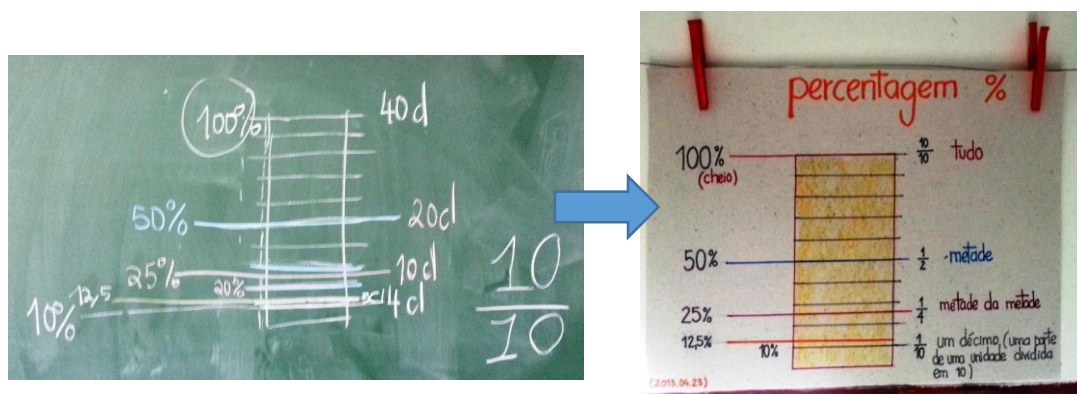 100% 40 cl
50% 20cl
25% 10 cl
20%
12,5 5cl 4 cl
10%
10
10
percentagem %
100% 10/10 tudo
(cheio)
50% 1/2 -metade
25% 1/4 metade da metade
12,5%
10% 1/10 um décimo, (uma parte
de uma unidade dividida
em 10)
(2013.04.23)